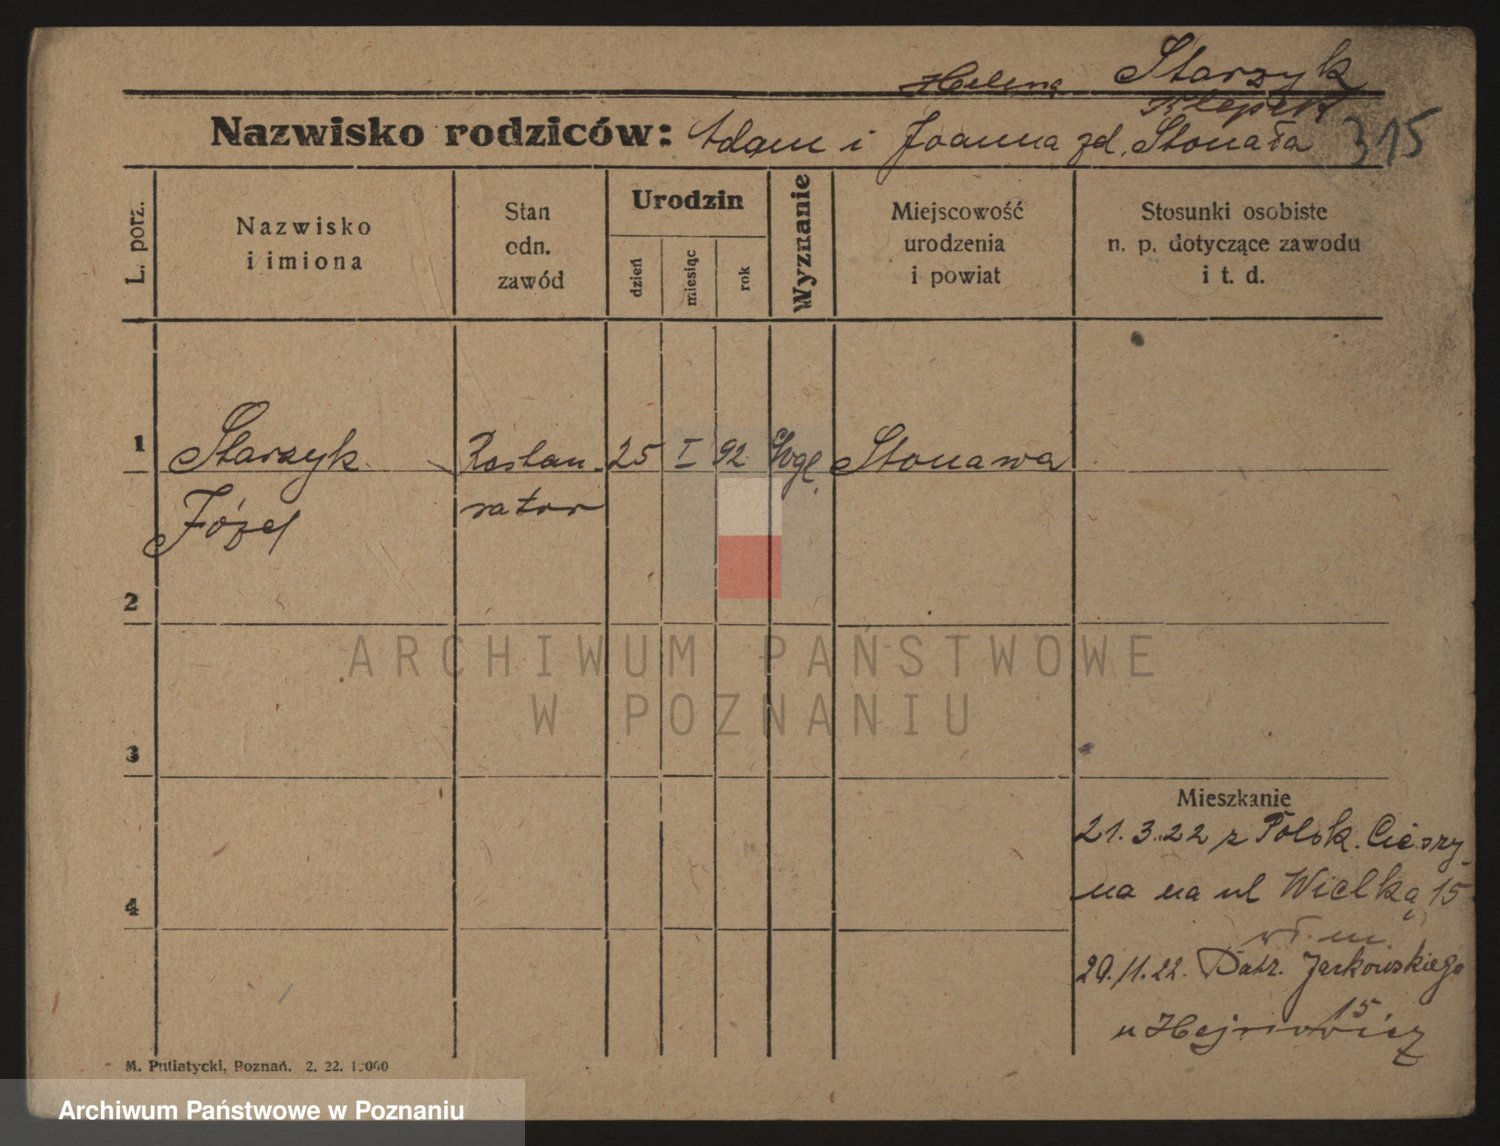 Helena Starzyk
Klepert
Nazwisko rodziców: Adam i Joanna zd. Stonała 315
L. porz.
Nazwisko
i imiona
Stan
odn.
zawód
Urodzin
dzień
miesiąc
rok
Wyznanie
Miejscowość
urodzenia
i powiat
Stosunki osobiste
n. p. dotyczące zawodu
i t. d.
1 Starzyk Restau- 25 I 92 Stonawa
Józef rator
2
3
4
Mieszkanie
21.3.22 z Polsk. Cieszy-
na na ul Wielką 15
wł. m.
29.11.22. Patr. Jackowskiego
15
u
M. Putiatycki, Poznań. 2. 22.
ARCHIWUM PAŃSTWOWE
W POZNANIU
Archiwum Państwowe w Poznaniu